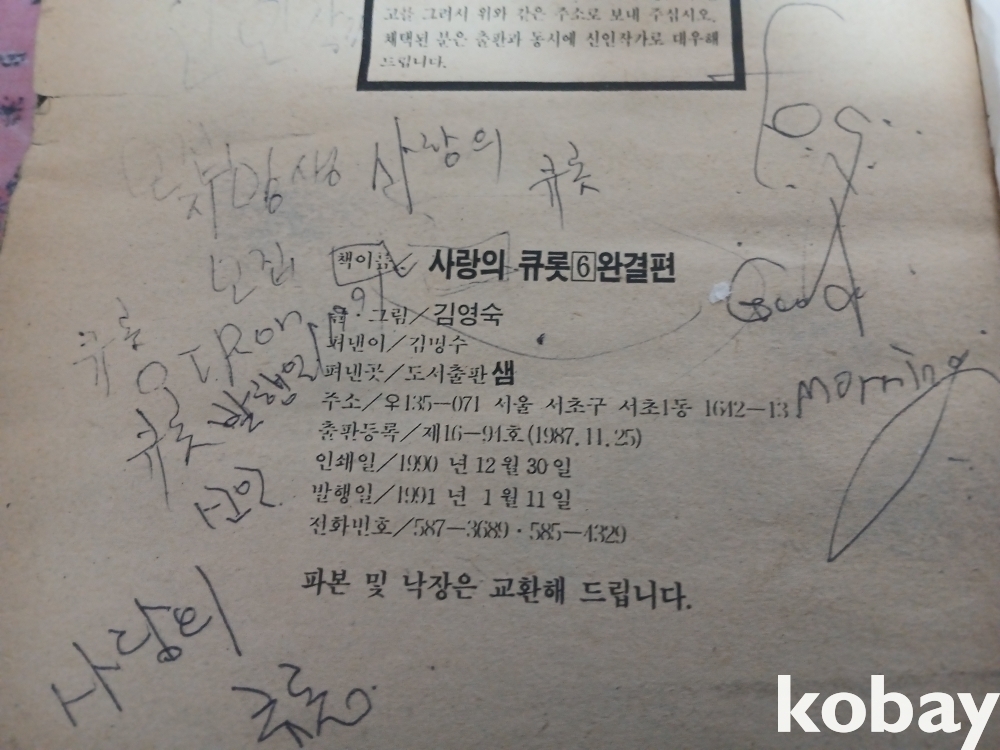 고를 그려서 위와 같은 주소로 보내 주십시오.
채택된 분은 출판과 동시에 신인작가로 대우해
드립니다.
사랑의
큐롯
모집
책이름/사랑의 큐롯6완결편
글·그림/김영숙
펴낸이/김명수
펴낸곳/도서출판 샘
주소/우135—071 서울 서초구 서초1동 1642—13
출판등록/제16—94호(1987.11.25)
인쇄일/1990 년 12월 30일
발행일/1991 년 1월 11일
전화번호/587—3689·585—4329
파본 및 낙장은 교환해 드립니다.
큐롯
발행일
큐롯
Good
Morning
사랑의
큐롯
kobay